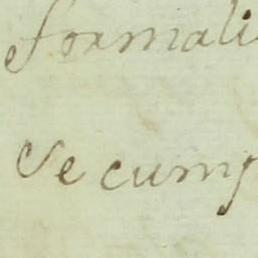 formali
Se cump